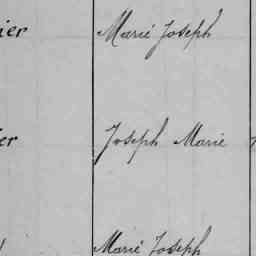 ier Marié Joseph
er Joseph Marie
Marié Joseph